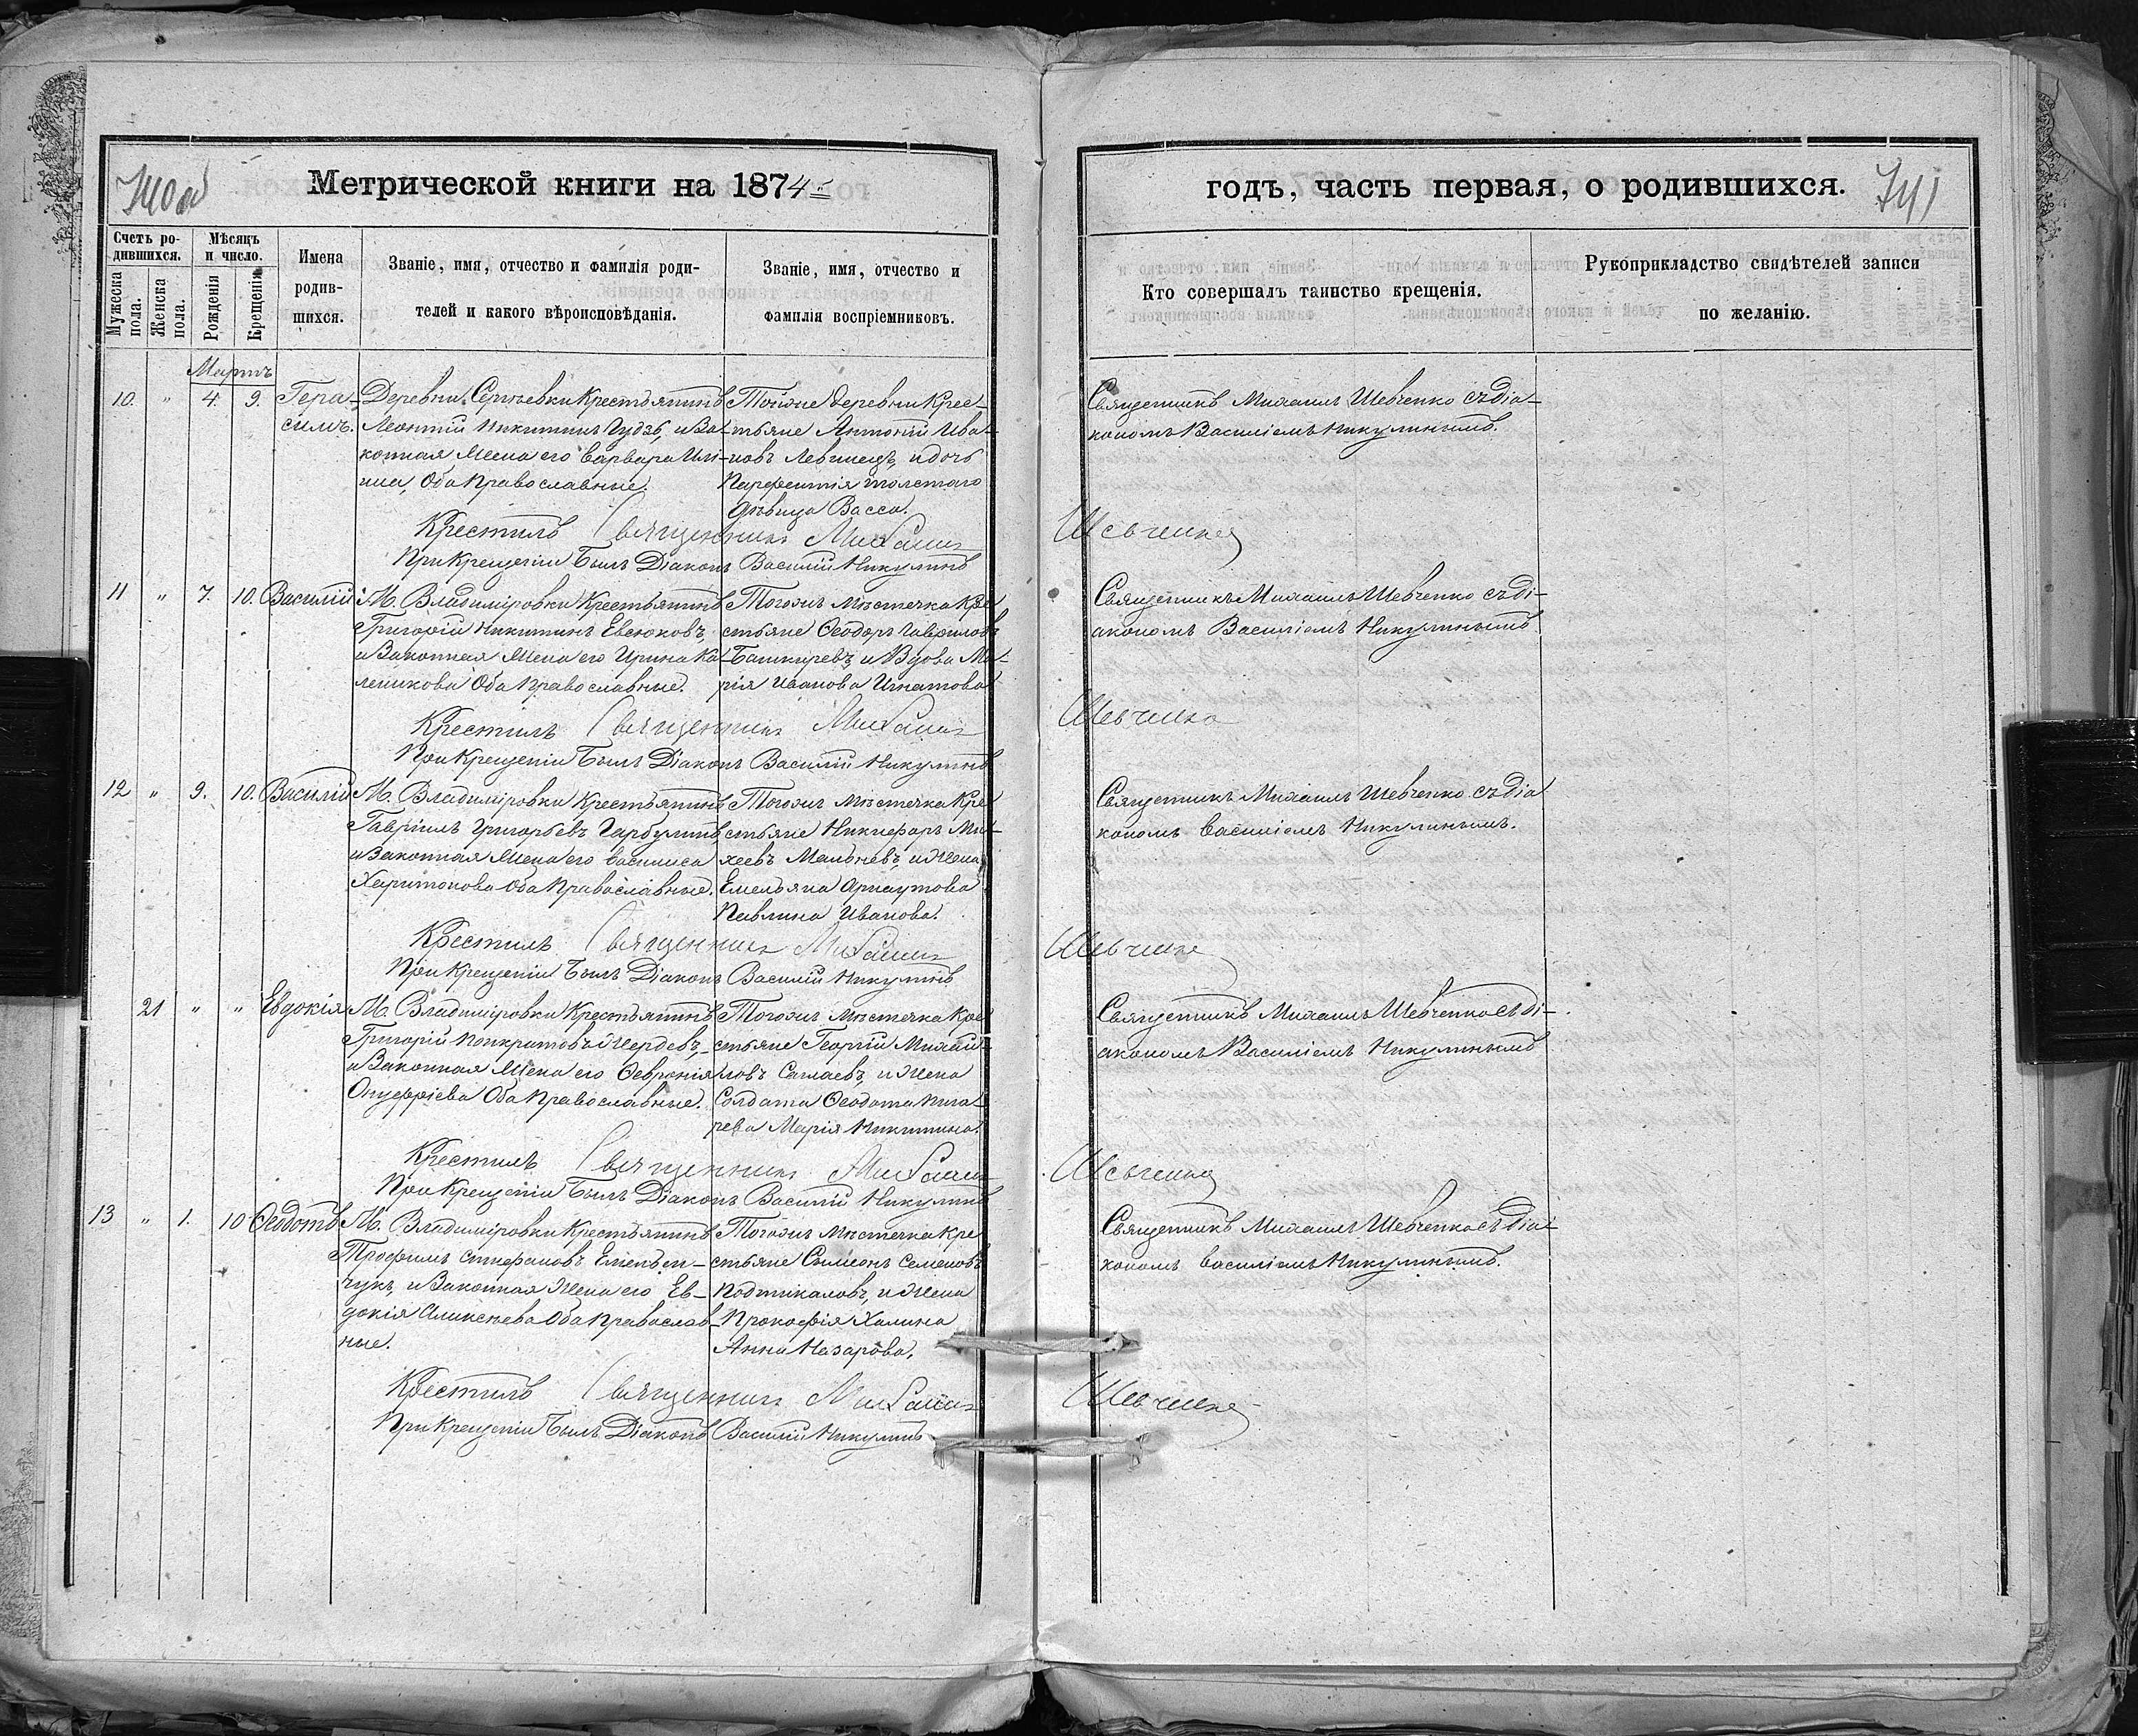 740об
Метрической книги на 1874
годъ, часть первая, о родившихся.
741
Счетъ ро-
дившихся.
Мѣсяцъ
и число.
Мужеска
пола.
Женска
пола.
Рожденія
Крещенія
Имена
родив-
шихся.
Званіе, имя, отчество и фамилія роди-
телей и какого вѣроисповѣданія.
Званіе, имя, отчество и
фамилія воспріемниковъ.
Кто совершалъ таинство крещенія.
Рукоприкладство свидѣтелей записи
по желанію.
Мартъ
10. " 4. 9. Гера-
симъ.
Деревни Сергѣевки Крестьянинъ
Леонтій Никитинъ Гудзь, и За-
конная Жена его Варвара Иль-
ина, Оба Православные.
Тойже деревни Крес-
тьяне Антоній Ива-
новъ Левинецъ, и дочь
Парфентія толстаго
дѣвица Васса.
Священникъ Михаилъ Шевченко съ діа-
кономъ Василіемъ Никулинымъ.
Крестилъ Священникъ Михаилъ Шевченко
При Крещеніи Былъ Діаконъ Василій Никулинъ
11 " 7. 10. Василій
М. Владиміровки Крестьянинъ
Григорій Никитинъ Евсюковъ,
и Законная Жена его Ирина Ка-
леникова Оба Православные.
Тогожъ мѣстечка Кре
стьяне Ѳеодоръ Гавриловъ
Башкиревъ, и Вдова Ма-
рія Иванова Игнатова
Священникъ Михаилъ Шевченко съ ді-
акономъ Василіемъ Никулинымъ
Крестилъ Священникъ Михаилъ Шевченко
При Крещеніи Былъ Діаконъ Василій Никулинъ
12 " 9. 10. Василій
М. Владиміровки Крестьянинъ
Гавріилъ Григорьевъ
и Законная Жена его Василиса
Харитонова Оба Православные.
Тогожъ мѣстечка Кре
стьяне Никифоръ Ми-
хеевъ Мальневъ, и Жена
Емельяна Арнаутова
Павлина Иванова.
Священникъ Михаилъ Шевченко съ діа
кономъ Василіемъ Никулинымъ.
Крестилъ Священникъ Михаилъ Шевченко
При Крещеніи Былъ Діаконъ Василій Никулинъ
21 " " Евдокія
М. Владиміровки Крестьянинъ
Григорій Панкратовъ
и Законная Жена его Ѳевронія
Онуфріева Оба Православные.
Тогожъ мѣстечка Кре
стьяне Георгій Михай-
ловъ и Жена
Солдата Ѳеодота Пига-
рева Марія Никитина.
Священникъ Михаилъ Шевченко съ ді-
акономъ Василіемъ Никулинымъ
Крестилъ Священникъ Михаилъ Шевченко
При Крещеніи Былъ Діаконъ Василій Никулинъ
13 " 1. 10 Ѳеодотъ
М. Владиміровки Крестьянинъ
Трофимъ Стефановъ Емельян-
чукъ, и Законная Жена его Ев-
докія Алексѣева Оба Православ-
ные.
Тогожъ мѣстечка Кре
стьяне Сѵмеонъ Семеновъ
и Жена
Прокофія Халина
Анна Назарова.
Священникъ Михаилъ Шевченко съ діа-
кономъ Василіемъ Никулинымъ.
Крестилъ Священникъ Михаилъ Шевченко
При Крещеніи Былъ Діаконъ Василій Никулинъ